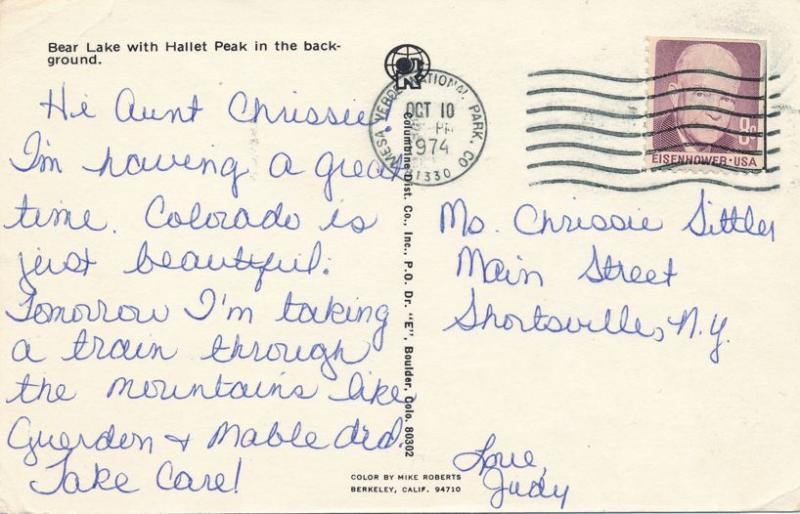 Bear Lake with Hallet Peak in the back-
ground.
Hi Aunt Chrissie,
I'm having a great
time. Colorado is
just beautiful.
Tomorrow I'm taking
a train through
the mountains like
Guerdon + Mable did.
Take Care!
Love,
Judy
MESA VERDE NATIONAL PARK, CO
OCT 10
PM
1974
81330
EISENHOWER·USA
8c
Ms. Chrissie Sittler
Main Street
Shortsville, N.Y.
Columbine Dist. Co., Inc., P.O. Dr. "E", Boulder, Colo. 80302
COLOR BY MIKE ROBERTS
BERKELEY, CALIF. 94710